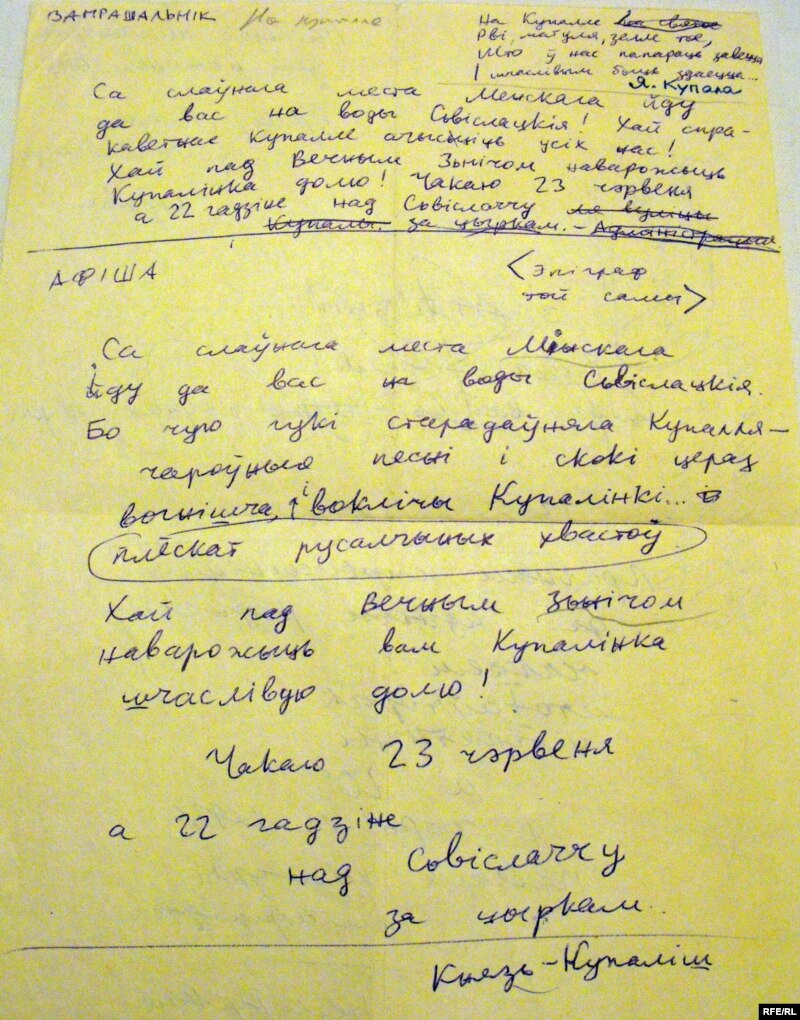 ЗАПРАШАЛЬНІК
На Купалле на свята
Рві, матуля, зелле тое,
Што ў нас папараць завецца
І шчаслівым быць здаецца...
Я. Купала
Са слаўнага места Менскага йду
да вас на воды Сьвіслацкія! Хай спра-
каветнае Купалле ачысьціць усіх нас!
Хай пад Вечным Зьнічом наварожыць
Купалінка долю! Чакаю 23 чэрвеня
а 22 гадзіне над Сьвіслаччу ля вуліцы
Купалы. за цыркам. – Адміністрацыя
АФІША
<Эпіграф
той самы>
Са слаўнага места Менскага
йду да вас на воды Сьвіслацкія.
Бо чую гукі старадаўняга Купалля –
чароўныя песні і скокі цераз
вогнішча, і воклічы Купалінкі...
плёскат русалчыных хвастоў
Хай пад Вечным Зьнічом
наварожыць вам Купалінка
шчаслівую долю!
Чакаю 23 чэрвеня
а 22 гадзіне
над Сьвіслаччу
за цыркам.
Князь-Купаліш
RFE/RL